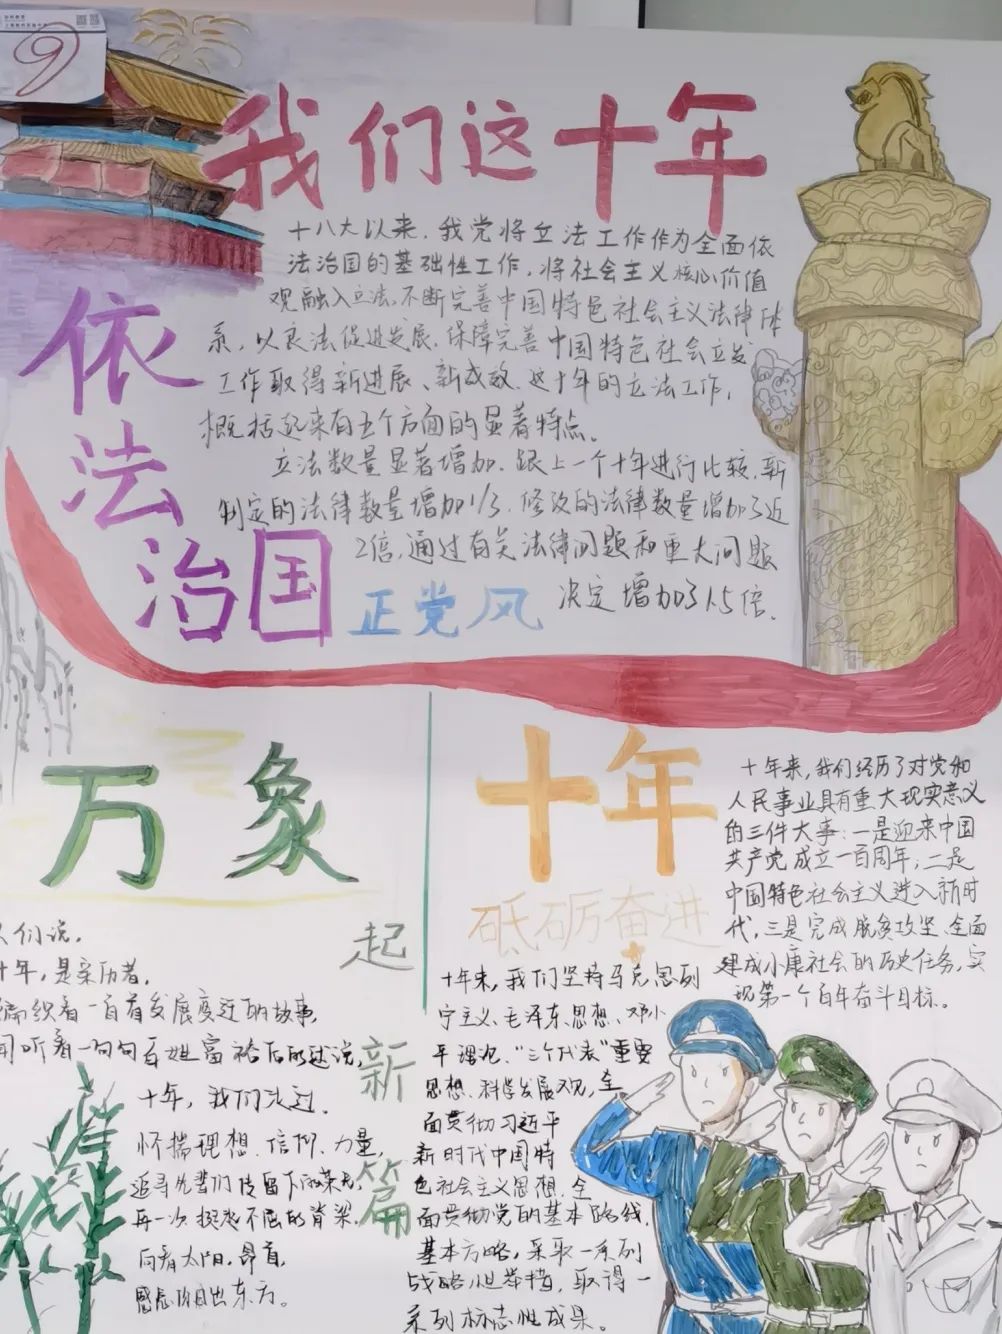 我们这十年
十八大以来，我党将立法工作作为全面依
法治国的基础性工作，将社会主义核心价值
观融入立法，不断完善中国特色社会主义法律体
系，以良法促进发展、保障完善中国特色社会立发
工作取得新进展、新成效。这十年的立法工作，
概括起来有五个方面的显著特点。
立法数量显著增加，跟上一个十年进行比较，新
制定的法律数量增加1/3，修改的法律数量增加了近
2倍，通过有关法律问题和重大问题
决定增加了1.5倍。
依法治国
正党风
万象
起新篇
人们说，
十年，是亲历者，
编织着一首首发展变迁的故事，
听着一句句百姓富裕后的述说，
十年，我们走过，
怀揣理想、信仰、力量，
追寻先辈们传留下的荣光，
再一次挺起不屈的脊梁，
向着太阳，昂首，
屹立东方。
十年
砥砺奋进
十年来，我们经历了对党和
人民事业具有重大现实意义
的三件大事：一是迎来中国
共产党成立一百周年；二是
中国特色社会主义进入新时
代，三是完成脱贫攻坚、全面
建成小康社会的历史任务，实
现第一个百年奋斗目标。
十年来，我们坚持马克思列
宁主义、毛泽东思想、邓小
平理论、“三个代表”重要
思想、科学发展观，全
面贯彻习近平
新时代中国特
色社会主义思想，全
面贯彻党的基本路线，
基本方略，采取一系列
战略性举措，取得一
系列标志性成果。